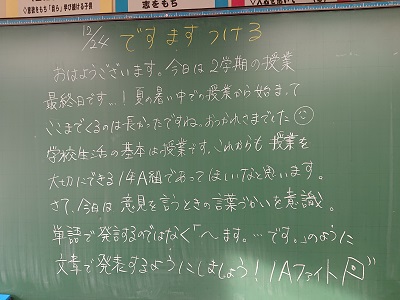 志をもち「自ら」学び続ける子供
志をもち
12/24 ですますつける
おはようございます。今日は2学期の授業
最終日です…！夏の暑い中での授業から始まって
ここまでくるのは長かったですね。おつかれさまでした☺
学校生活の基本は授業です。これからも授業を
大切にできる1年A組であってほしいなと思います。
さて、今日は意見を言うときの言葉づかいを意識。
単語で発言するのではなく「〜ます。…です。」のように
文章で発表するようにしましょう！1Aファイト